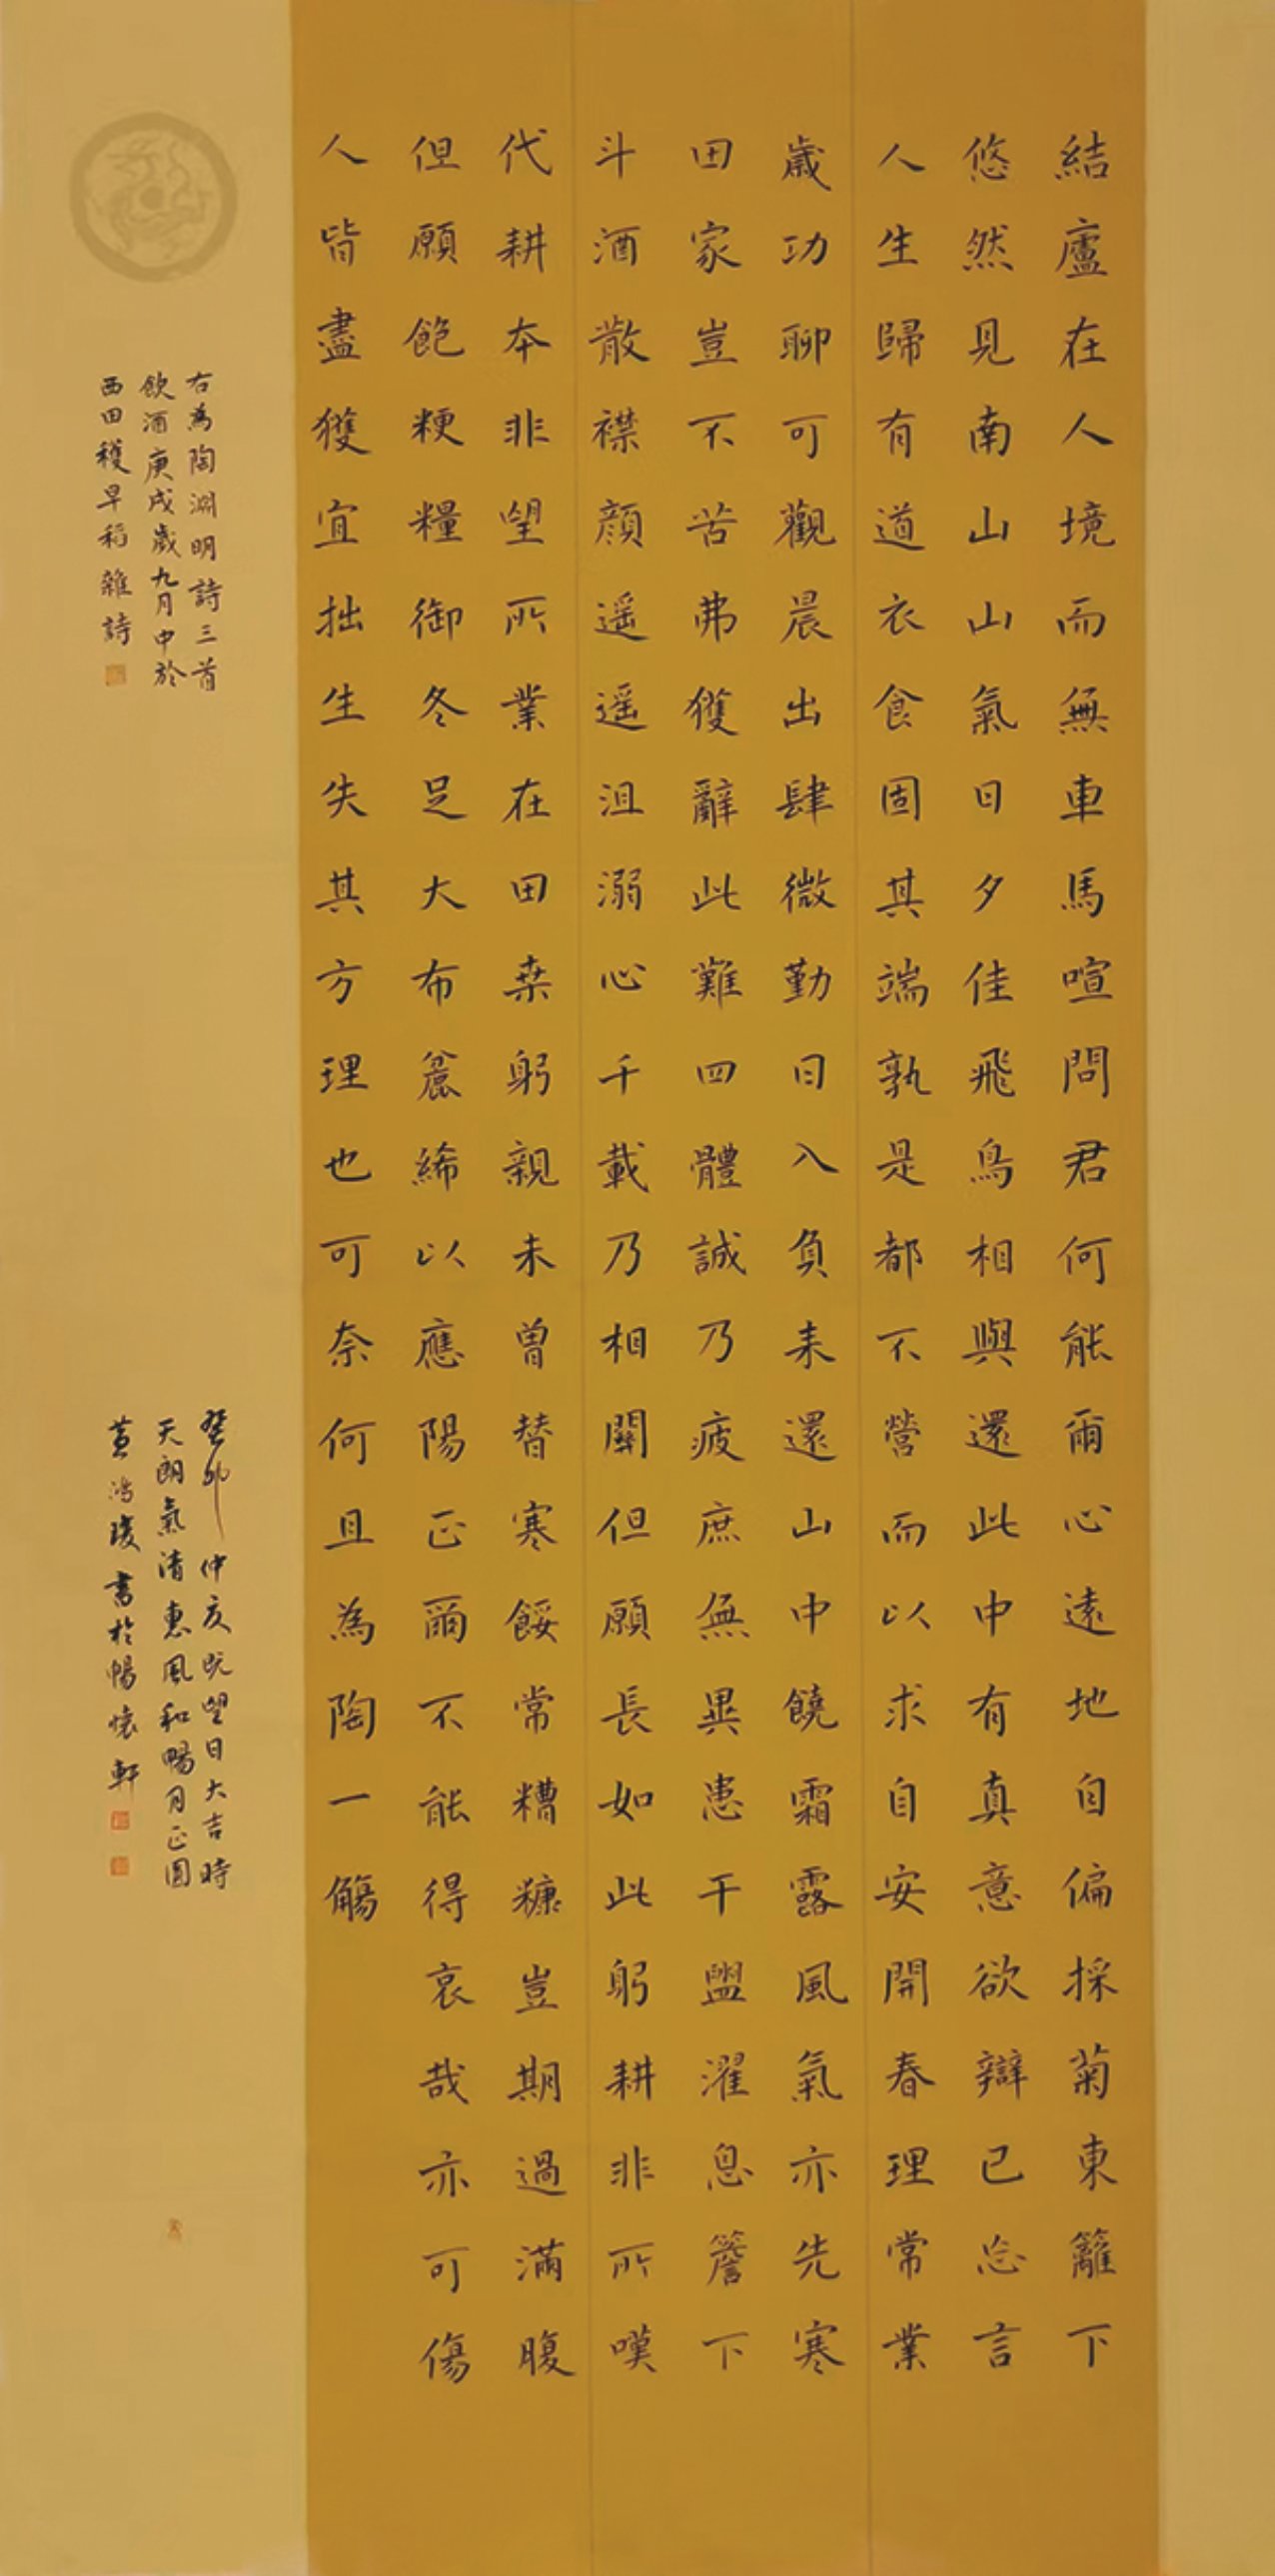 結廬在人境而無車馬喧問君何能爾心遠地自偏採菊東籬下
悠然見南山山氣日夕佳飛鳥相與還此中有真意欲辯已忘言
人生歸有道衣食固其端孰是都不營而以求自安開春理常業
歲功聊可觀晨出肆微勤日入負耒還山中饒霜露風氣亦先寒
田家豈不苦弗獲辭此難四體誠乃疲庶無異患干盥濯息簷下
斗酒散襟顏遥遥沮溺心千載乃相關但願長如此躬耕非所嘆
代耕本非望所業在田桑躬親未曾替寒餒常糟糠豈期過滿腹
但願飽粳糧御冬足大布麄絺以應陽正爾不能得哀哉亦可傷
人皆盡獲宜拙生失其方理也可奈何且為陶一觴
右為陶淵明詩三首
飲酒庚戌歲九月中於
西田穫早稻雜詩
癸卯仲夏既望日大吉時
天朗氣清惠風和暢月正圓
黃鴻瓊書於暢懷軒